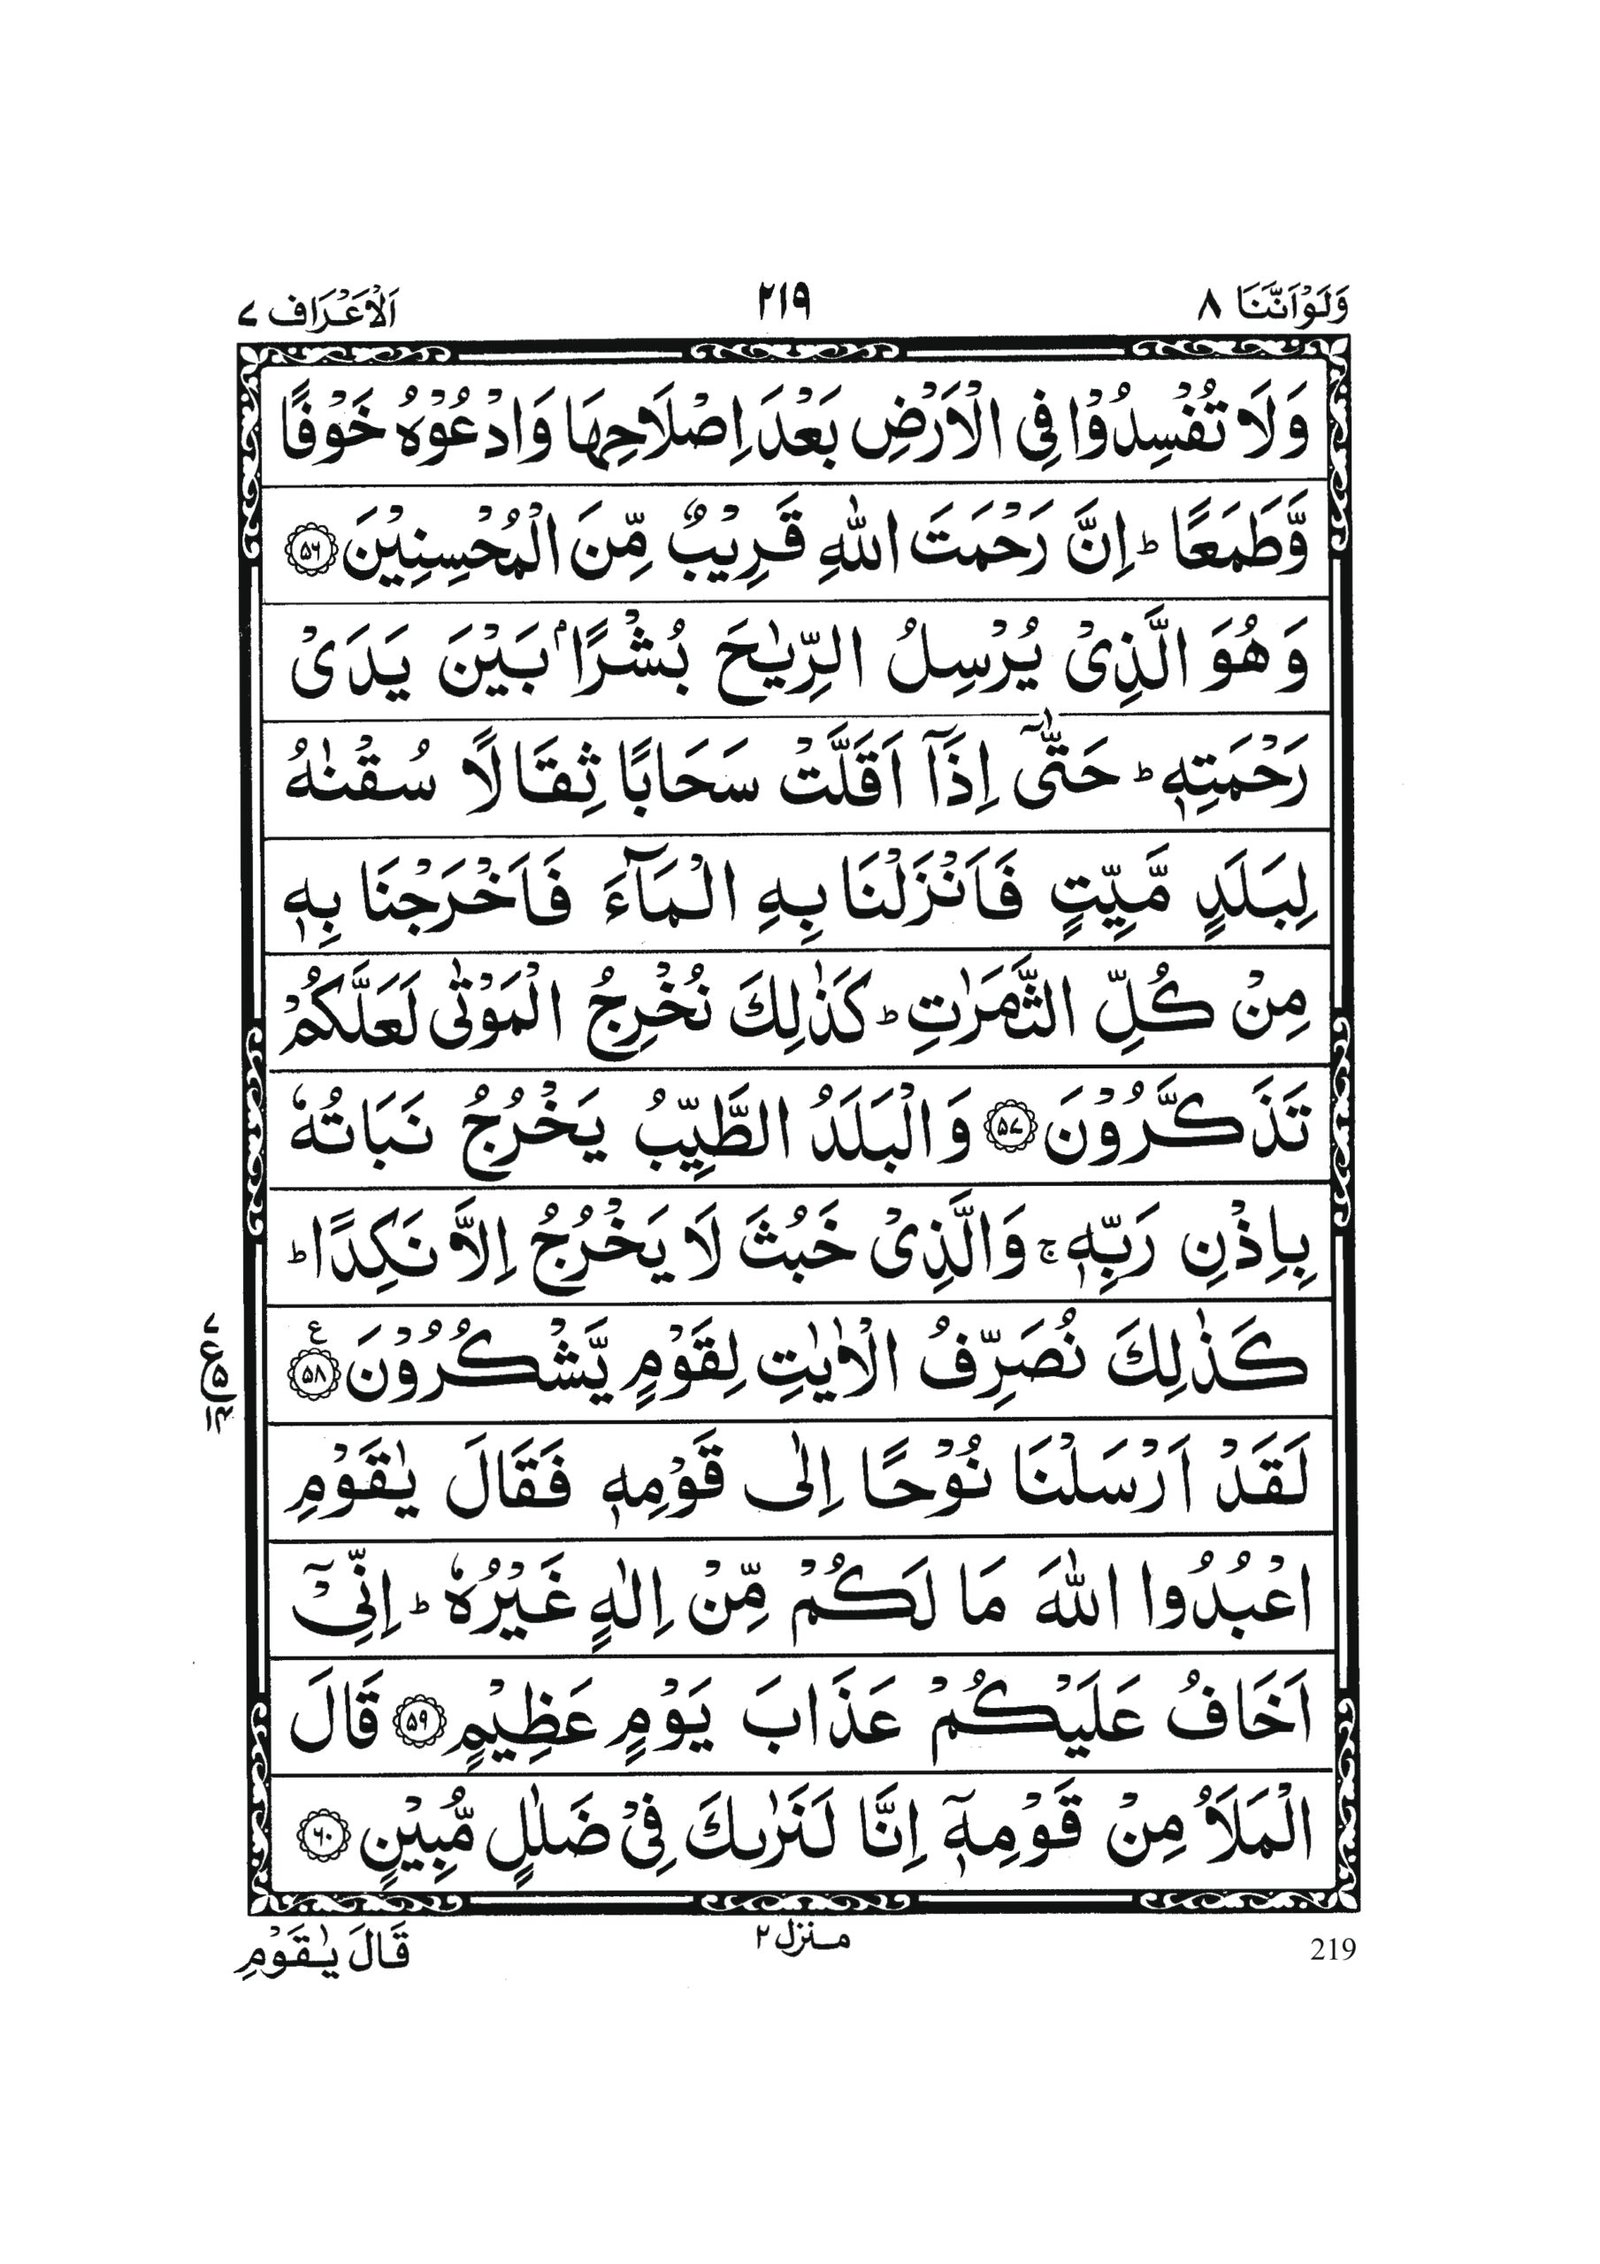 وَلَوْاَنَّنَا ۸
۲۱۹
اَلْاَعْرَاف ۷
وَلَا تُفْسِدُوْا فِى الْاَرْضِ بَعْدَ اِصْلَاحِهَا وَادْعُوْهُ خَوْفًا
وَّطَمَعًا ؕ اِنَّ رَحْمَتَ اللّٰهِ قَرِيْبٌ مِّنَ الْمُحْسِنِيْنَ ۵۶
وَهُوَ الَّذِىْ يُرْسِلُ الرِّيٰحَ بُشْرًاۢ بَيْنَ يَدَىْ
رَحْمَتِهٖ ؕ حَتّٰۤى اِذَاۤ اَقَلَّتْ سَحَابًا ثِقَالًا سُقْنٰهُ
لِبَلَدٍ مَّيِّتٍ فَاَنْزَلْنَا بِهِ الْمَآءَ فَاَخْرَجْنَا بِهٖ
مِنْ كُلِّ الثَّمَرٰتِ ؕ كَذٰلِكَ نُخْرِجُ الْمَوْتٰى لَعَلَّكُمْ
تَذَكَّرُوْنَ ۵۷ وَالْبَلَدُ الطَّيِّبُ يَخْرُجُ نَبَاتُهٗ
بِاِذْنِ رَبِّهٖ ۚ وَالَّذِىْ خَبُثَ لَا يَخْرُجُ اِلَّا نَكِدًا ؕ
كَذٰلِكَ نُصَرِّفُ الْاٰيٰتِ لِقَوْمٍ يَّشْكُرُوْنَ ۵۸ ع
لَقَدْ اَرْسَلْنَا نُوْحًا اِلٰى قَوْمِهٖ فَقَالَ يٰقَوْمِ
اعْبُدُوا اللّٰهَ مَا لَكُمْ مِّنْ اِلٰهٍ غَيْرُهٗ ؕ اِنِّىْۤ
اَخَافُ عَلَيْكُمْ عَذَابَ يَوْمٍ عَظِيْمٍ ۵۹ قَالَ
الْمَلَاُ مِنْ قَوْمِهٖۤ اِنَّا لَنَرٰىكَ فِىْ ضَلٰلٍ مُّبِيْنٍ ۶۰
219
منزل ۲
قَالَ يٰقَوْمِ